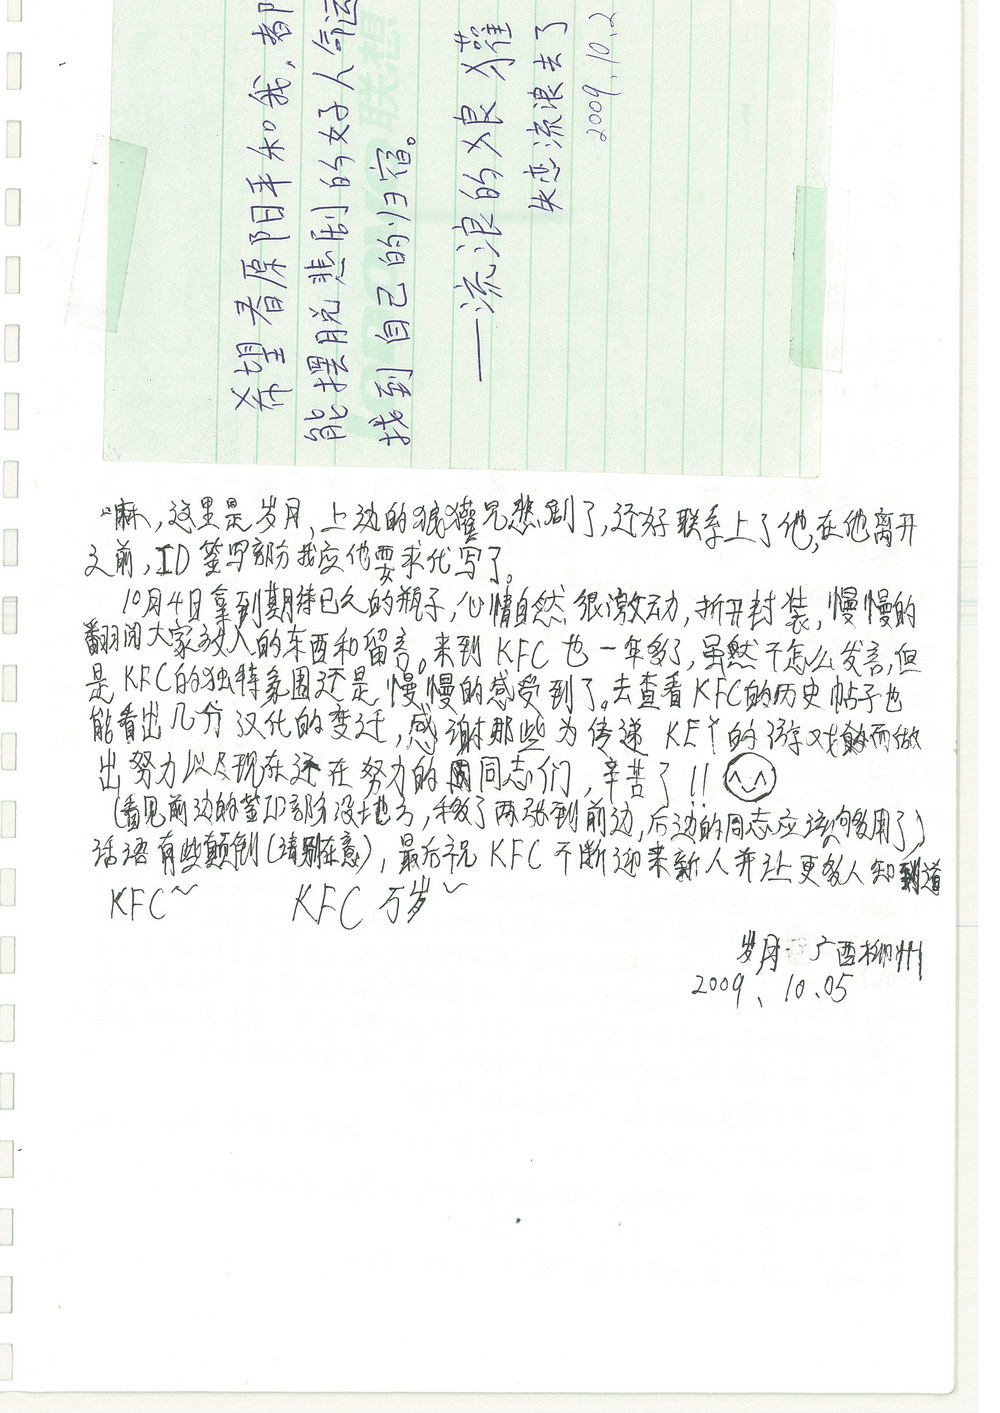 希望春原阳平和我，都
能摆脱悲剧的好人命运
找到自己的归宿。
——流浪的狼獾
失恋流浪去了
2009.10.2
联想
嘛，这里是岁月，上边的狼獾兄悲剧了，还好联系上了他，在他离开
之前，ID签写部分我应他要求代写了。
10月4日拿到期待已久的瓶子，心情自然很激动，折开封装，慢慢的
翻阅大家放入的东西和留言。来到KFC也一年多了，虽然不怎么发言，但
是KFC的独特氛围还是慢慢的感受到了。去查看KFC的历史帖子也
能看出几分汉化的变迁，感谢那些为传递KEY的游戏而做
出努力以及现在还在努力的同志们，辛苦了!!
(看见前边的签ID部分没地方，移了两张到前边，后边的同志应该够用了)
话语有些颠倒(请别在意)，最后祝KFC不断迎来新人并让更多人知道
KFC~ KFC万岁~
岁月 广西柳州
2009、10.05